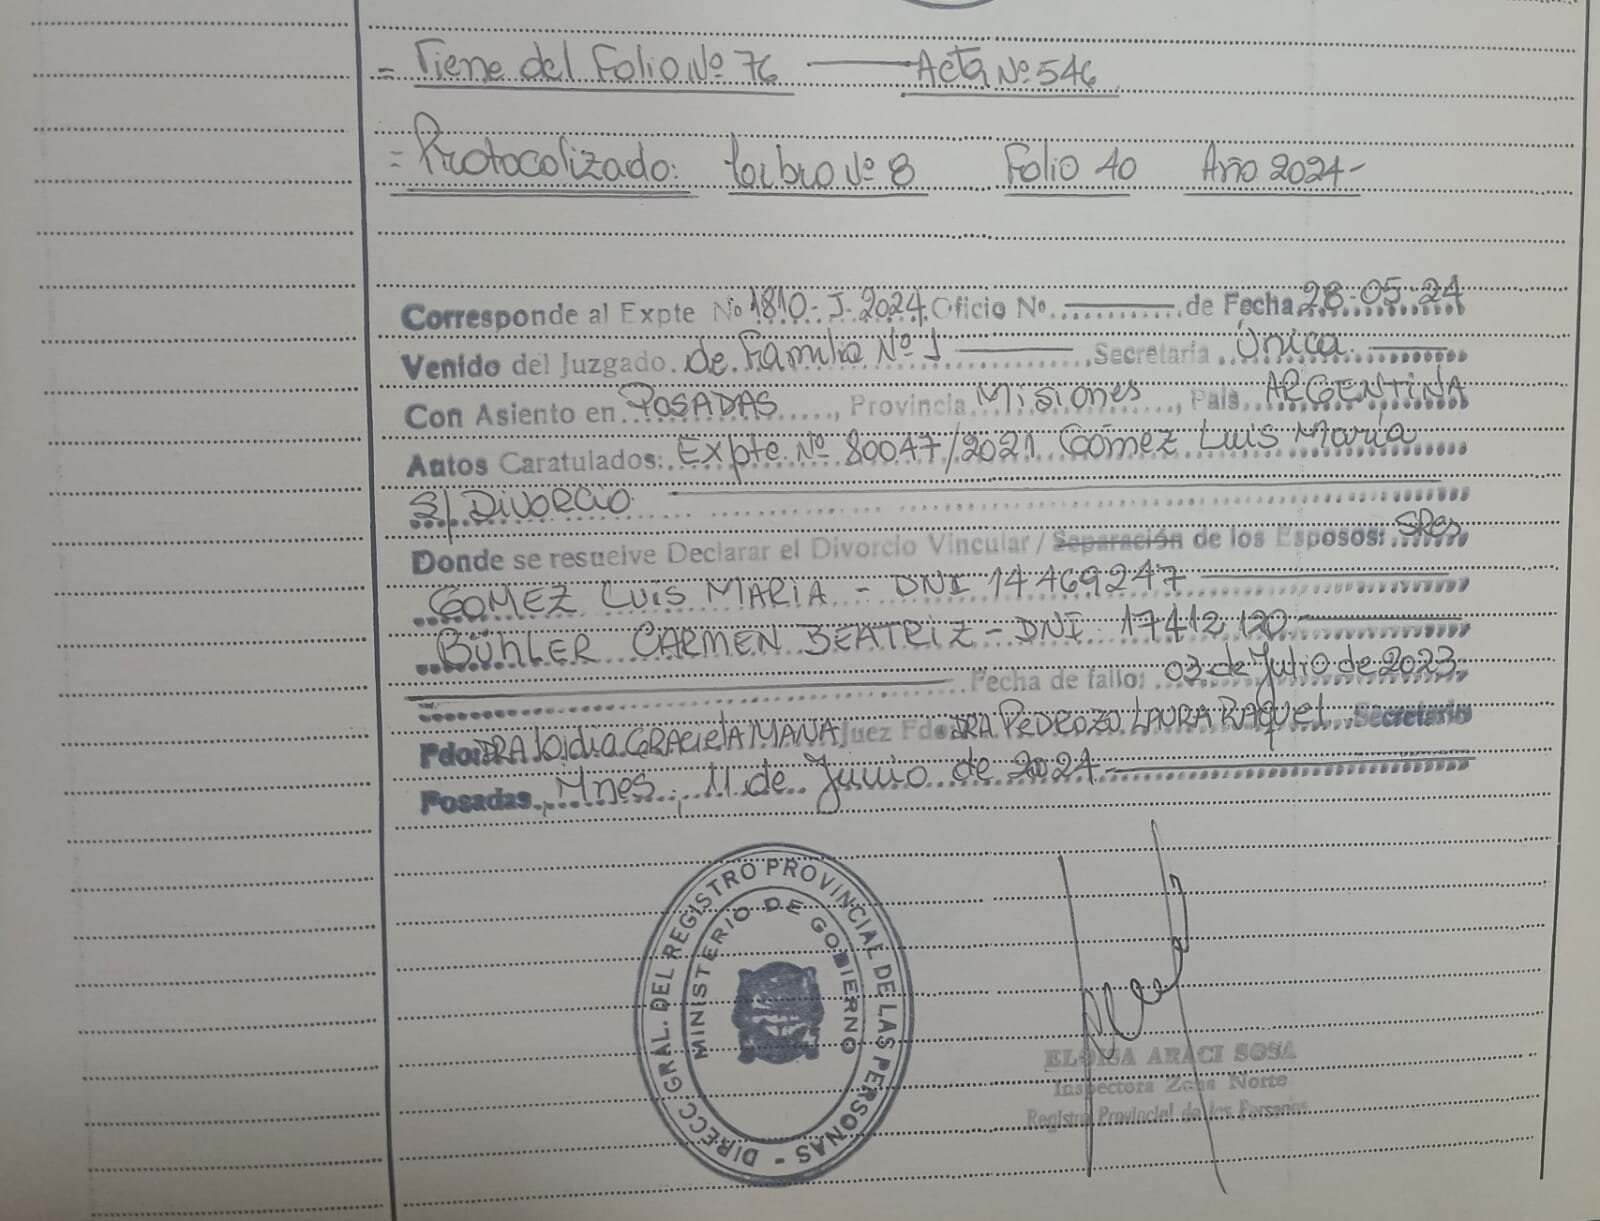 = Viene del Folio Nº 76 — Acta Nº 546
= Protocolizado: Libro Nº 8 Folio 40 Año 2024-
Corresponde al Expte Nº 1810-J-2024 Oficio Nº ——— de Fecha 28-05-24
Venido del Juzgado de Familia Nº 1 ——— Secretaria Única ———
Con Asiento en POSADAS, Provincia Misiones, País ARGENTINA
Autos Caratulados: Expte Nº 80047/2021 Gómez Luis María
S/ Divorcio ———
Donde se resuelve Declarar el Divorcio Vincular / Separación de los Esposos: SRes
GOMEZ LUIS MARIA - DNI 14469247 ———
BÜHLER CARMEN BEATRIZ - DNI 17412120 ———
——— Fecha de fallo: 03 de Julio de 2023
Fdo: DRA Lidia GRACIELA MANA Juez Fdo DRA PEDROZO LAURA RAQUEL Secretario
Posadas, Mnes, 11 de Junio de 2024 ———
DIRECC GRAL. DEL REGISTRO PROVINCIAL DE LAS PERSONAS -
MINISTERIO DE GOBIERNO
ELOISA ARACI SOSA
Inspectora Zona Norte
Registro Provincial de las Personas